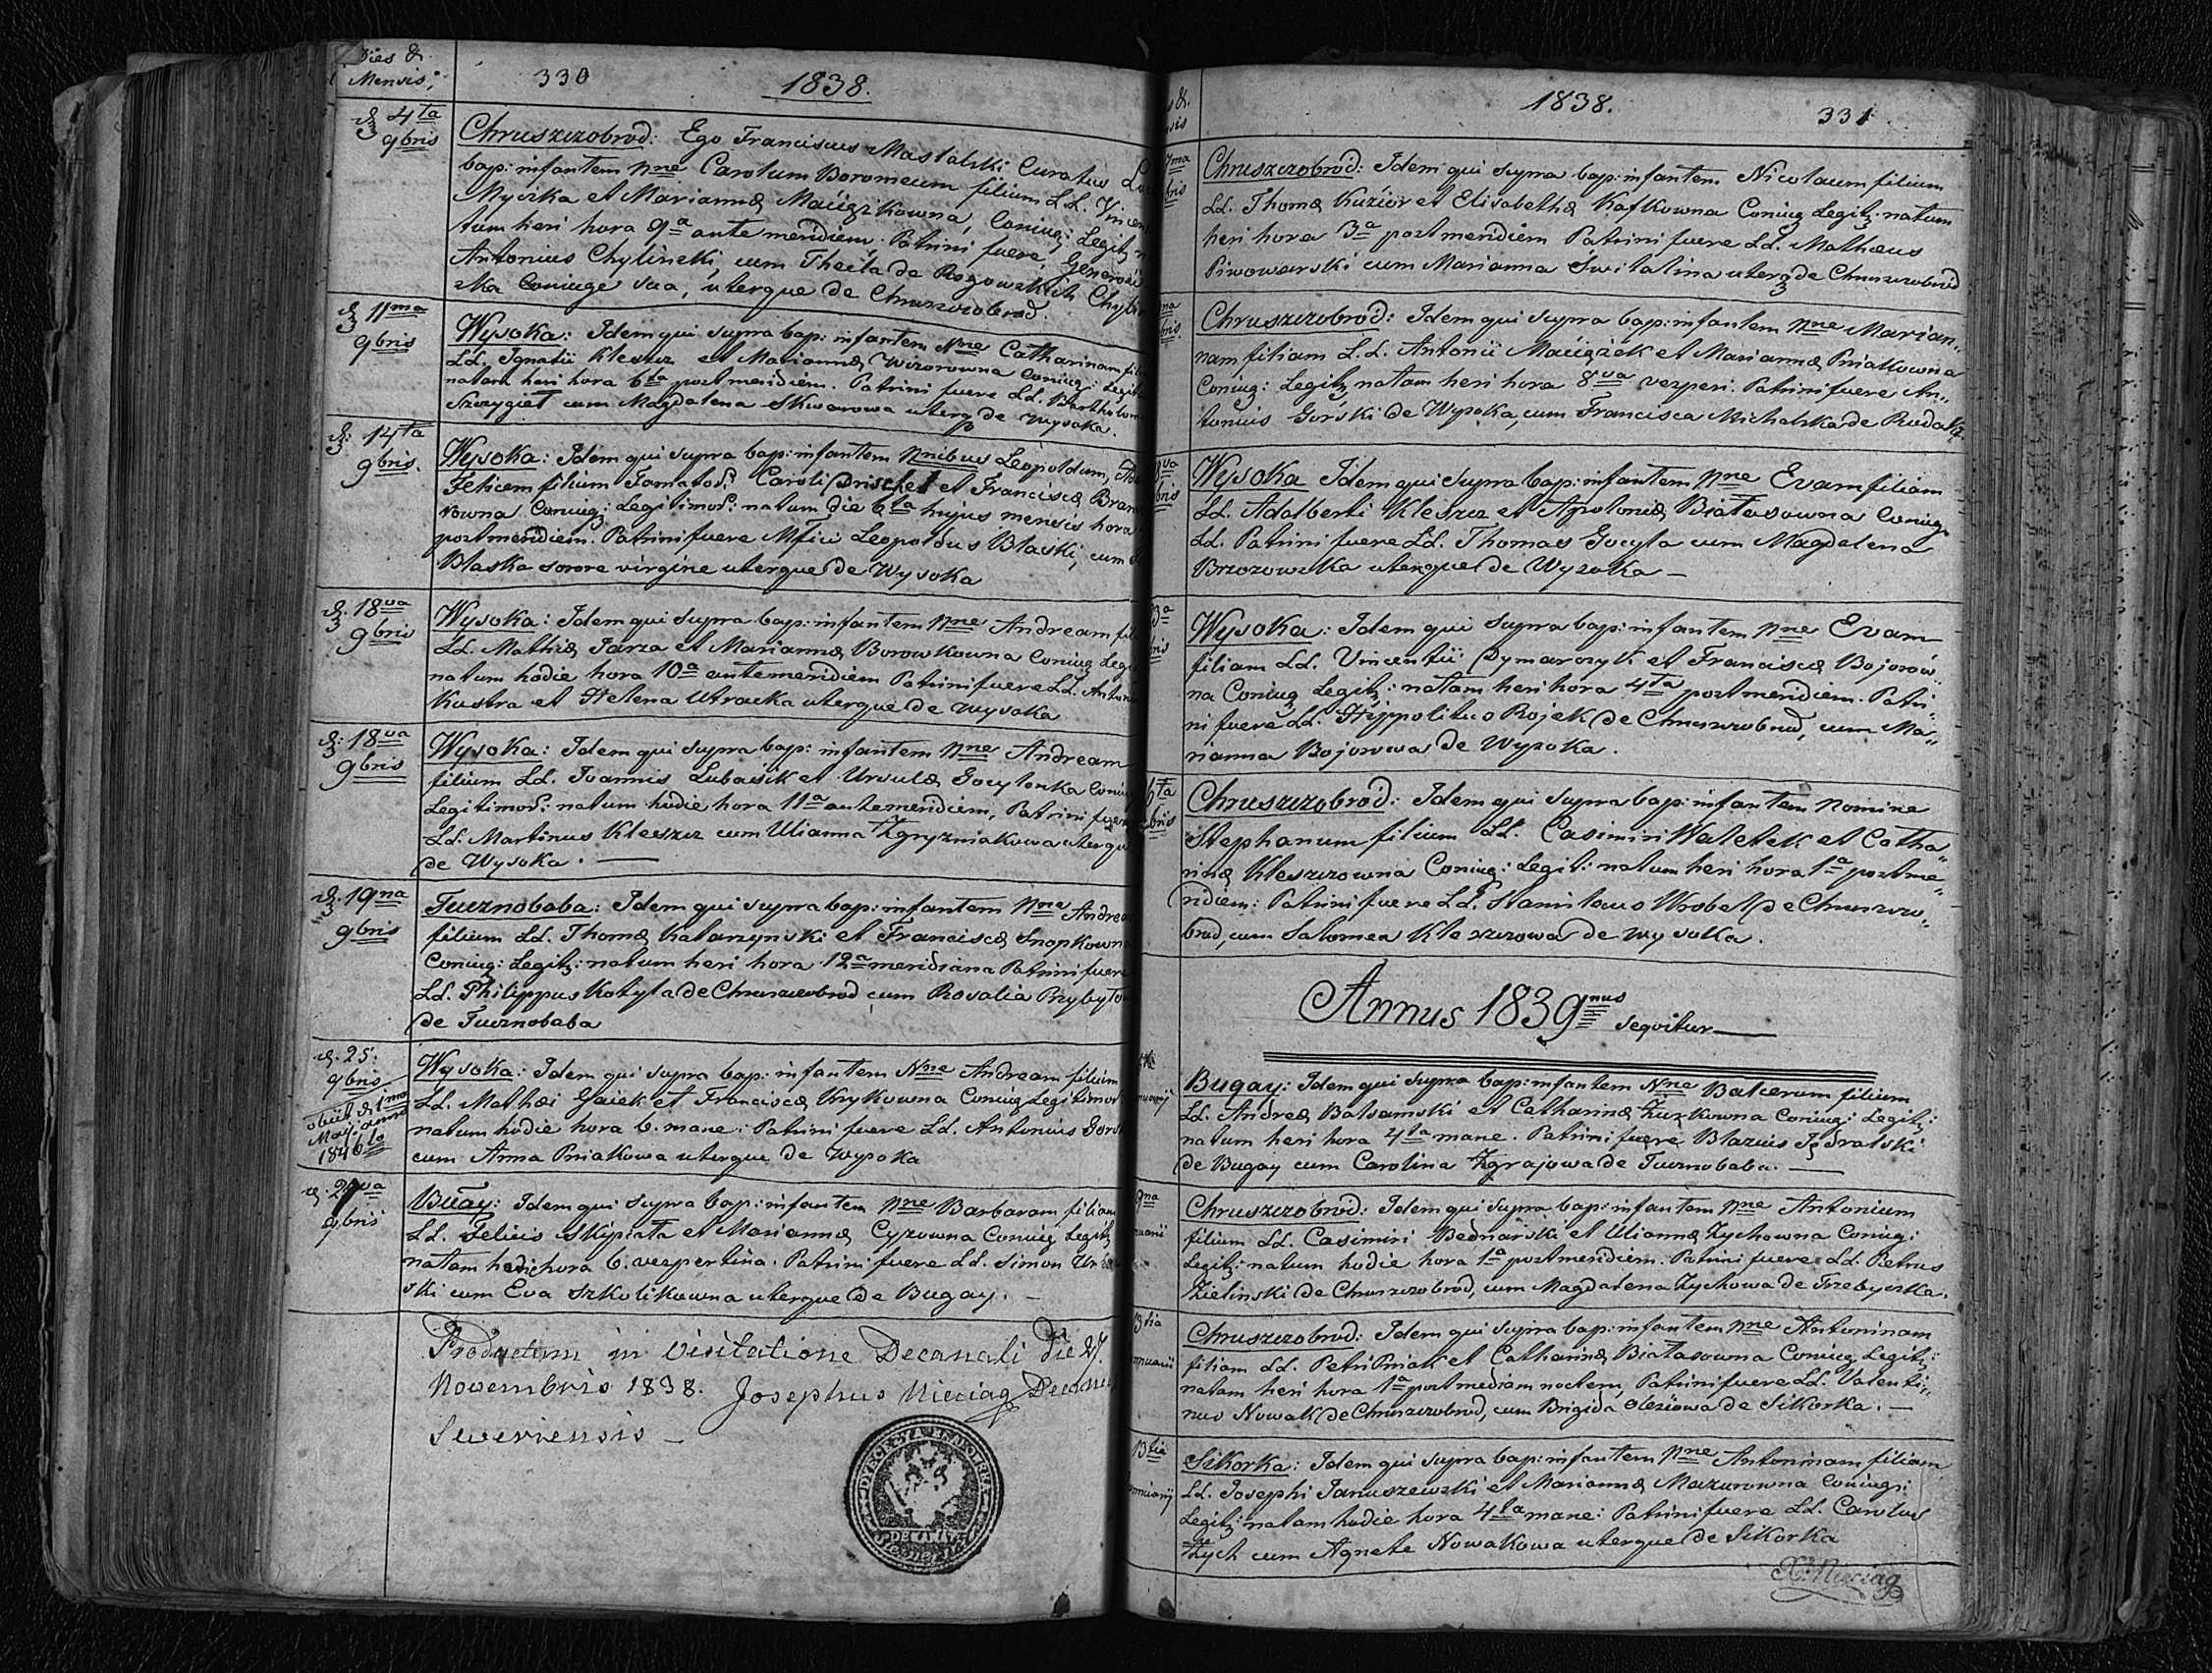 Dies &
Mensis.
330
1838.
d. 4ta
9bris
Chruszczobrod: Ego Franciscus Mastalski Curatus
bap: infantem Nne Carolum Boromeum filium LL. Vincen
Myszka et Mariannæ Maciązkowna, Coniug: Legit:
tum heri hora 9a ante meridiem. Patrini fuere, Generosi
Antonius Chyliński, cum Thecla de Rogowskich Chyli
ska Coniuge sua, uterque de Chruszczobrod.
d. 11ma
9bris
Wysoka: Idem qui supra bap: infantem Nne Catharinam fil
LL. Ignatii Kleszcz et Mariannæ Wizorowna Coniug: Legit
natam heri hora 6ta post meridiem. Patrini fuere LL. Bartholom
Szczygieł cum Magdalena Skworowa uterq de Wysoka.
d: 14ta
9bris.
Wysoka: Idem qui supra bap: infantem Nnibus Leopoldum,
Felicem filium Famatod: Caroli Drischel et Franciscæ Bran
nowna Coniug: Legitimor: natum die 6ta hujus mensis hora
post meridiem. Patrini fuere Mfici Leopoldus Blaski, cum
Blaska sorore virgine uterque de Wysoka
d. 18va
9bris
Wysoka: Idem qui supra bap: infantem Nne Andream fil
LL. Mathiæ Jarza et Mariannæ Borowkowna Coniug Legi
natum hodie hora 10a ante meridiem Patrini fuere LL. Antoni
Kustra et Helena Utracka uterque de Wysoka
d: 18va
9bris
Wysoka: Idem qui supra bap: infantem Nne Andream
filium LL. Joannis Lubasik et Ursulæ Gocylonka Coniu
Legitimor: natum hodie hora 11a ante meridiem, Patrini fuere
LL. Martinus Kleszcz cum Ulianna Zgryzniakowa uterqu
de Wysoka. —
d. 19na
9bris
Tucznobaba: Idem qui supra bap: infantem Nne Andrea
filium LL. Thomæ Katarzynski et Franciscæ Snopkown
Coniug: Legit: natum heri hora 12a meridiana Patrini fuere
LL. Philippus Kotyla de Chruszczobrod cum Rosalia Przybyło
de Tucznobaba
d. 25.
9bris
obiit d. 1ma
Maji anno
1846to
Wysoka: Idem qui supra bap: infantem Nne Andream filium
LL. Mathæi Gaiek et Franciscæ Krykowna Coniug Legitimor
natum hodie hora 6. mane. Patrini fuere LL. Antonius Gors
cum Anna Pniakowa uterque de Wysoka
9bris
Bugay: Idem qui supra bap: infantem Nne Barbaram filiam
LL. Felicis Skipiała et Mariannæ Cyzowna Coniug Legit
natam heri hora 6. vespertina. Patrini fuere LL. Simon
ski cum Eva Szkolikowna uterque de Bugay. —
Productum in visitatione Decanali die 27.
Novembris 1838. Josephus Nieciąg Decanus
Seweriensis —
1838.
331
7ma
bris
Chruszczobrod: Idem qui supra bap: infantem Nicolaum filium
LL. Thomæ Kuzior et Elisabethæ Kafkowna Coniug Legit: natum
heri hora 3a post meridiem Patrini fuere LL. Mathæus
Piwowarski cum Marianna Switalina uterq de Chruszczobrod
na
bris.
Chruszczobrod: Idem qui supra bap: infantem Nne Marian„
nam filiam L.L. Antonii Maciązek et Mariannæ Pniakowna
Coniug: Legit natam heri hora 8va vesperi. Patrini fuere An„
tonius Gorski de Wysoka, cum Francisca Michalska de Ruda
8va
bris
Wysoka Idem qui supra bap: infantem Nne Evam filiam
LL. Adalberti Kleszcz et Apoloniæ Białasowna Coniug
LL. Patrini fuere LL. Thomas Gocyla cum Magdalena
Brzozowska uterque de Wysoka —
3a
bris
Wysoka: Idem qui supra bap: infantem Nne Evam
filiam LL. Vincentii Dymarczyk et Franciscæ Bojarow
na Coniug Legit: natam heri hora 4ta post meridiem. Patri„
ni fuere LL. Hyppolitus Rojek de Chruszczobrod, cum Ma„
rianna Bojorowa de Wysoka.
6ta
bris
Chruszczobrod: Idem qui supra bap: infantem nomine
Stephanum filium LL. Casimiri Waletek et Catha„
rinæ Kleszczowna Coniug: Legit: natum heri hora 1a post me„
ridiem: Patrini fuere LL. Stanislaus Wrobel de Chruszczo„
brod, cum Salomea Kleszczowa de Wysoka.
Annus 1839nus sequitur
Bugay: Idem qui supra bap: infantem Nne Balcerum filium
LL. Andreæ Balsamski et Catharinæ Zurkowna Coniug: Legit:
natum heri hora 4ta mane. Patrini fuere Blazius Jędralski
de Bugay cum Carolina Zgrajowa de Tucznobaba. —
9na
nuarii
Chruszczobrod: Idem qui supra bap: infantem Nne Antonium
filium LL. Casimiri Bednarski et Uliannæ Zychowna Coniug:
Legit: natum hodie hora 1a post meridiem. Patrini fuere LL. Petrus
Zielinski de Chruszczobrod, cum Magdalena Zychowa de Trzebyczka.
13tia
nnuarii
Chruszczobrod: Idem qui supra bap: infantem Nne Antoninam
filiam LL. Petri Pniak et Catharinæ Białasowna Coniug Legit:
natam heri hora 1a post mediam noctem, Patrini fuere LL. Valenti„
nus Nowak de Chruszczobrod, cum Brigida Oleziowa de Sikorka. —
13tia
nnuarij
Sikorka: Idem qui supra bap: infantem Nne Antoninam filiam
LL. Josephi Januszewski et Mariannæ Mazurowna Coniug:
Legit: natam hodie hora 4ta mane: Patrini fuere LL. Carolus
Zych cum Agnete Nowakowa uterque de Sikorka
X. Nieciąg